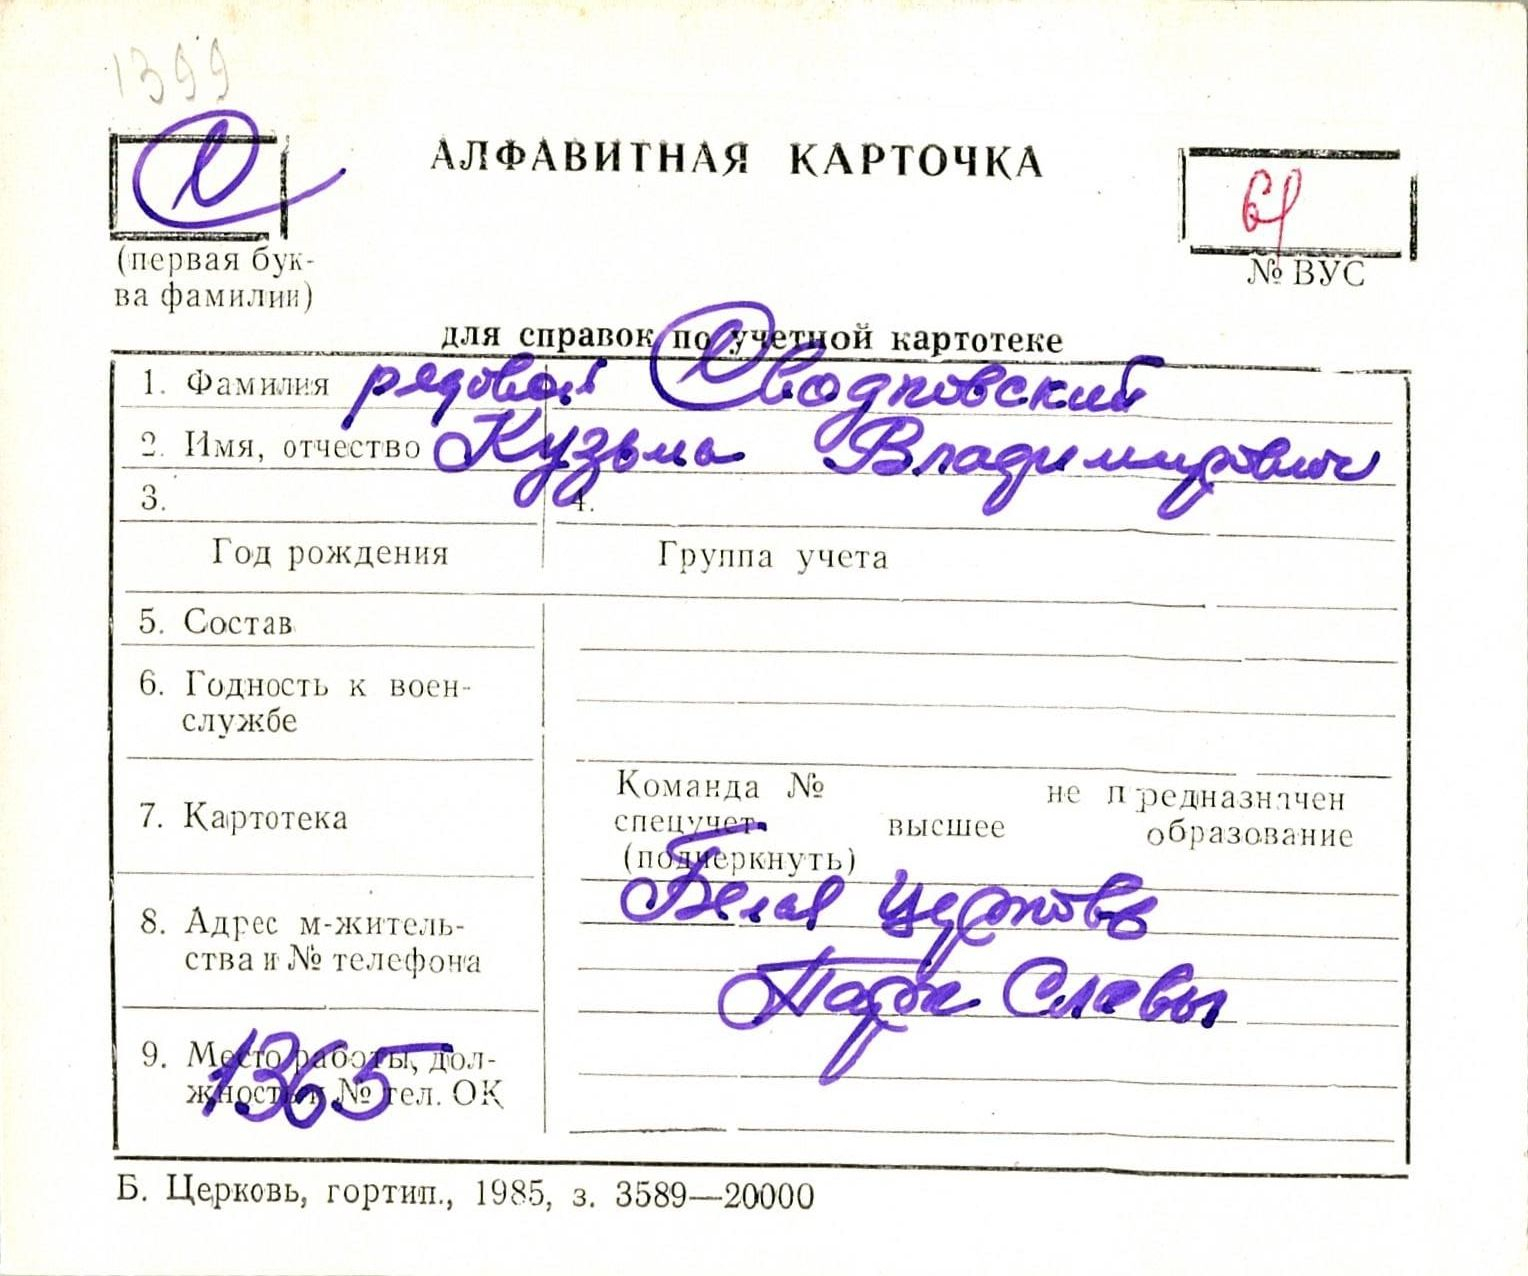 1399
С
АЛФАВИТНАЯ КАРТОЧКА
(первая бук-
ва фамилии)
№ ВУС
для справок по учетной картотеке
1. Фамилия рядовой
2. Имя, отчество Кузьма Владимирович
3.
4.
Год рождения
Группа учета
5. Состав
6. Годность к воен-
службе
7. Картотека
Команда № не предназначен
спецучет высшее образование
(подчеркнуть)
8. Адрес м-житель-
ства и № телефона
Белая Церковь
Парк Славы
9. Место работы, дол-
жность и № тел. ОК
1365
Б. Церковь, гортип., 1985, з. 3589—20000